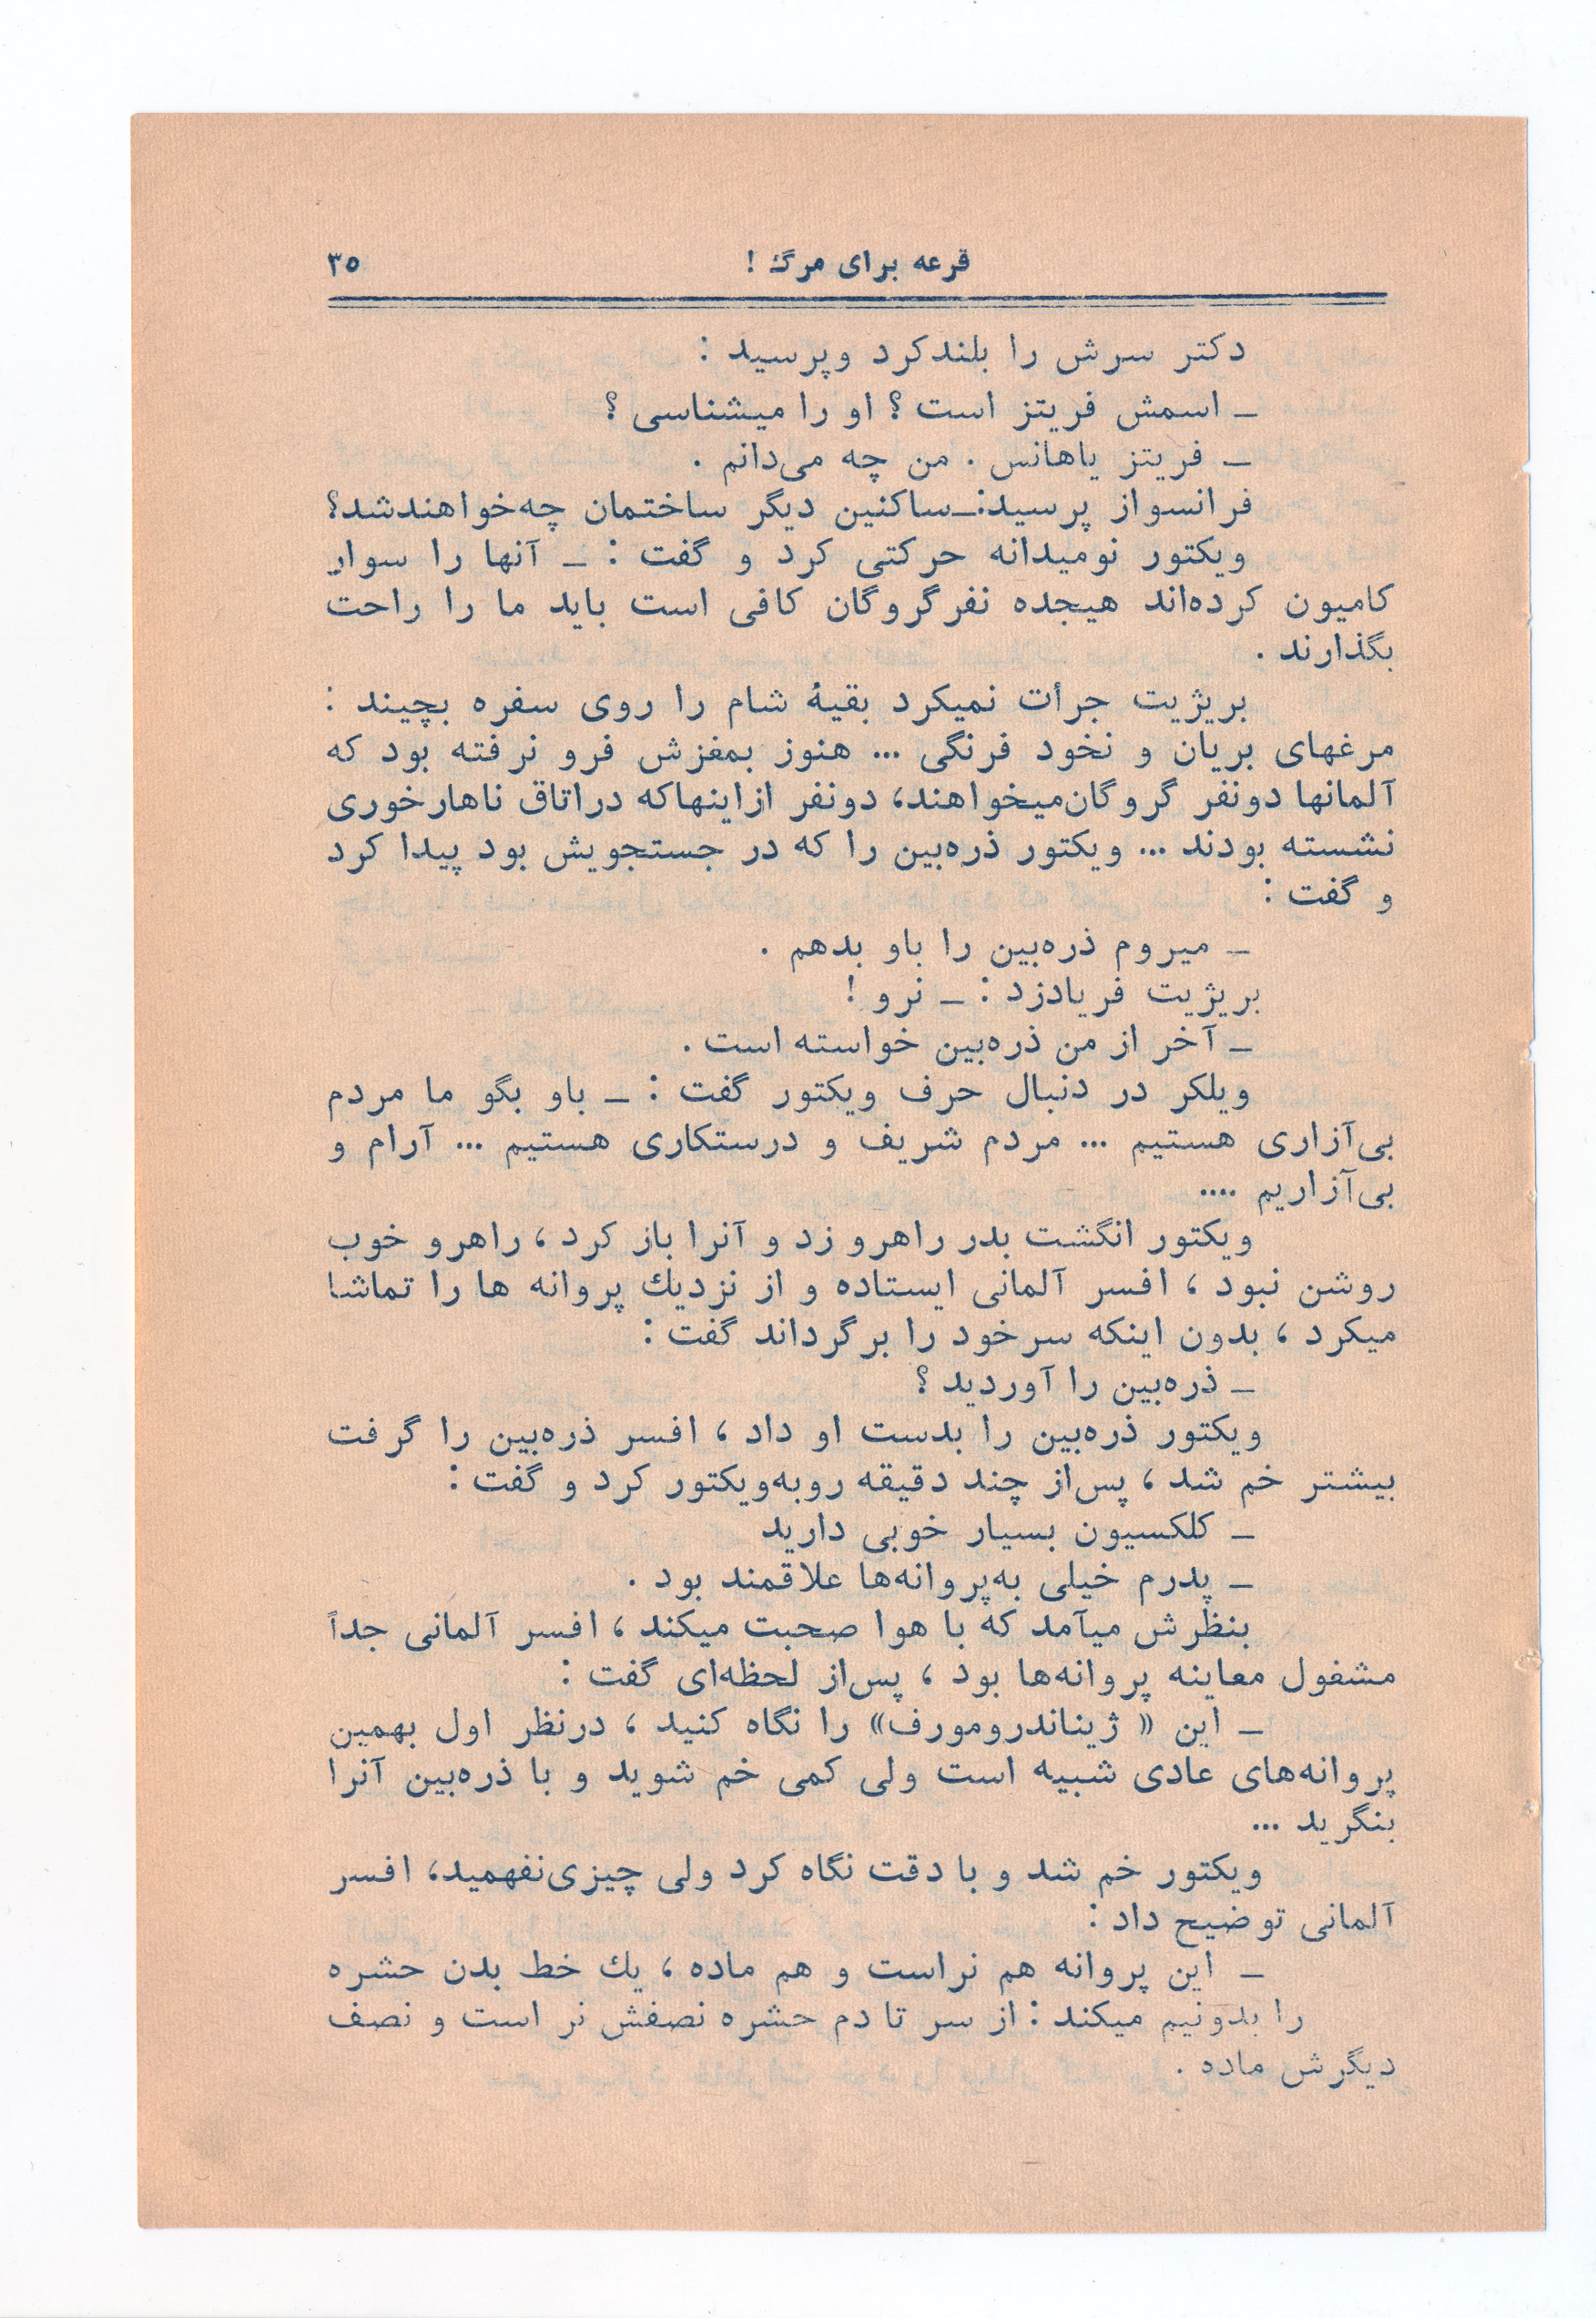 قرعه برای مرگ ! ۳۵
دکتر سرش را بلندکرد وپرسید :
ـ اسمش فریتز است ؟ او را میشناسی ؟
ـ فریتز یاهانس . من چه می‌دانم .
فرانسواز پرسید:ـ ساکنین دیگر ساختمان چه‌خواهندشد؟
ویکتور نومیدانه حرکتی کرد و گفت : ـ آنها را سوار
کامیون کرده‌اند هیجده نفرگروگان کافی است باید ما را راحت
بگذارند .
بریژیت جرأت نمیکرد بقیهٔ شام را روی سفره بچیند :
مرغهای بریان و نخود فرنگی ... هنوز بمغزش فرو نرفته بود که
آلمانها دونفر گروگان‌میخواهند، دونفر ازاینهاکه دراتاق ناهارخوری
نشسته بودند ... ویکتور ذره‌بین را که در جستجویش بود پیدا کرد
و گفت :
ـ میروم ذره‌بین را باو بدهم .
بریژیت فریادزد : ـ نرو !
ـ آخر از من ذره‌بین خواسته است .
ویلکر در دنبال حرف ویکتور گفت : ـ باو بگو ما مردم
بی‌آزاری هستیم ... مردم شریف و درستکاری هستیم ... آرام و
بی‌آزاریم ....
ویکتور انگشت بدر راهرو زد و آنرا باز کرد ، راهرو خوب
روشن نبود ، افسر آلمانی ایستاده و از نزدیك پروانه ها را تماشا
میکرد ، بدون اینکه سرخود را برگرداند گفت :
ـ ذره‌بین را آوردید ؟
ویکتور ذره‌بین را بدست او داد ، افسر ذره‌بین را گرفت
بیشتر خم شد ، پس‌از چند دقیقه روبه‌ویکتور کرد و گفت :
ـ کلکسیون بسیار خوبی دارید
ـ پدرم خیلی به‌پروانه‌ها علاقمند بود .
بنظرش میآمد که با هوا صحبت میکند ، افسر آلمانی جداً
مشغول معاینه پروانه‌ها بود ، پس‌از لحظه‌ای گفت :
ـ این « ژیناندرومورف» را نگاه کنید ، درنظر اول بهمین
پروانه‌های عادی شبیه است ولی کمی خم شوید و با ذره‌بین آنرا
بنگرید ...
ویکتور خم شد و با دقت نگاه کرد ولی چیزی‌نفهمید، افسر
آلمانی توضیح داد :
ـ این پروانه هم نراست و هم ماده ، یك خط بدن حشره
را بدونیم میکند : از سر تا دم حشره نصفش نر است و نصف
دیگرش ماده .